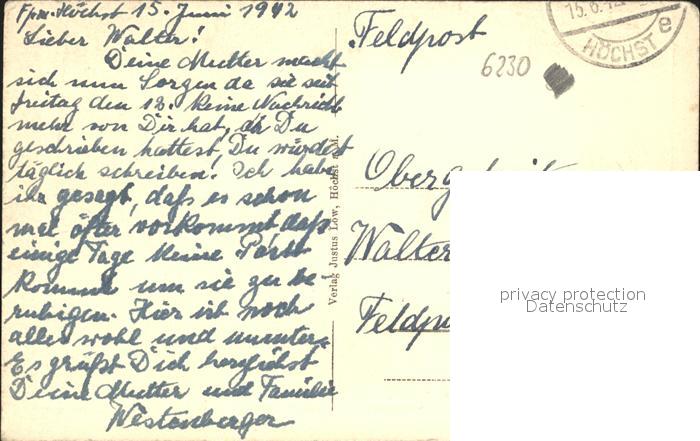 Ffm.-Höchst 15. Juni 1942
Lieber Walter!
Deine Mutter macht
sich nun Sorgen da sie seit
Freitag den 12. keine Nachricht
mehr von Dir hat, da Du
geschrieben hattest Du würdest
täglich schreiben! Ich habe
ihr gesagt, dass es schon
mal öfter vorkommt dass
einige Tage keine Post
kommt um sie zu be-
ruhigen. Hier ist noch
alles wohl und munter.
Es grüßt Dich herzlichst
Deine Mutter und Familie
Westenberger
Verlag Justus Löw, Höchst a. M.
Feldpost
6230
15.6.42
HÖCHST
e
Walter
privacy protection
Datenschutz